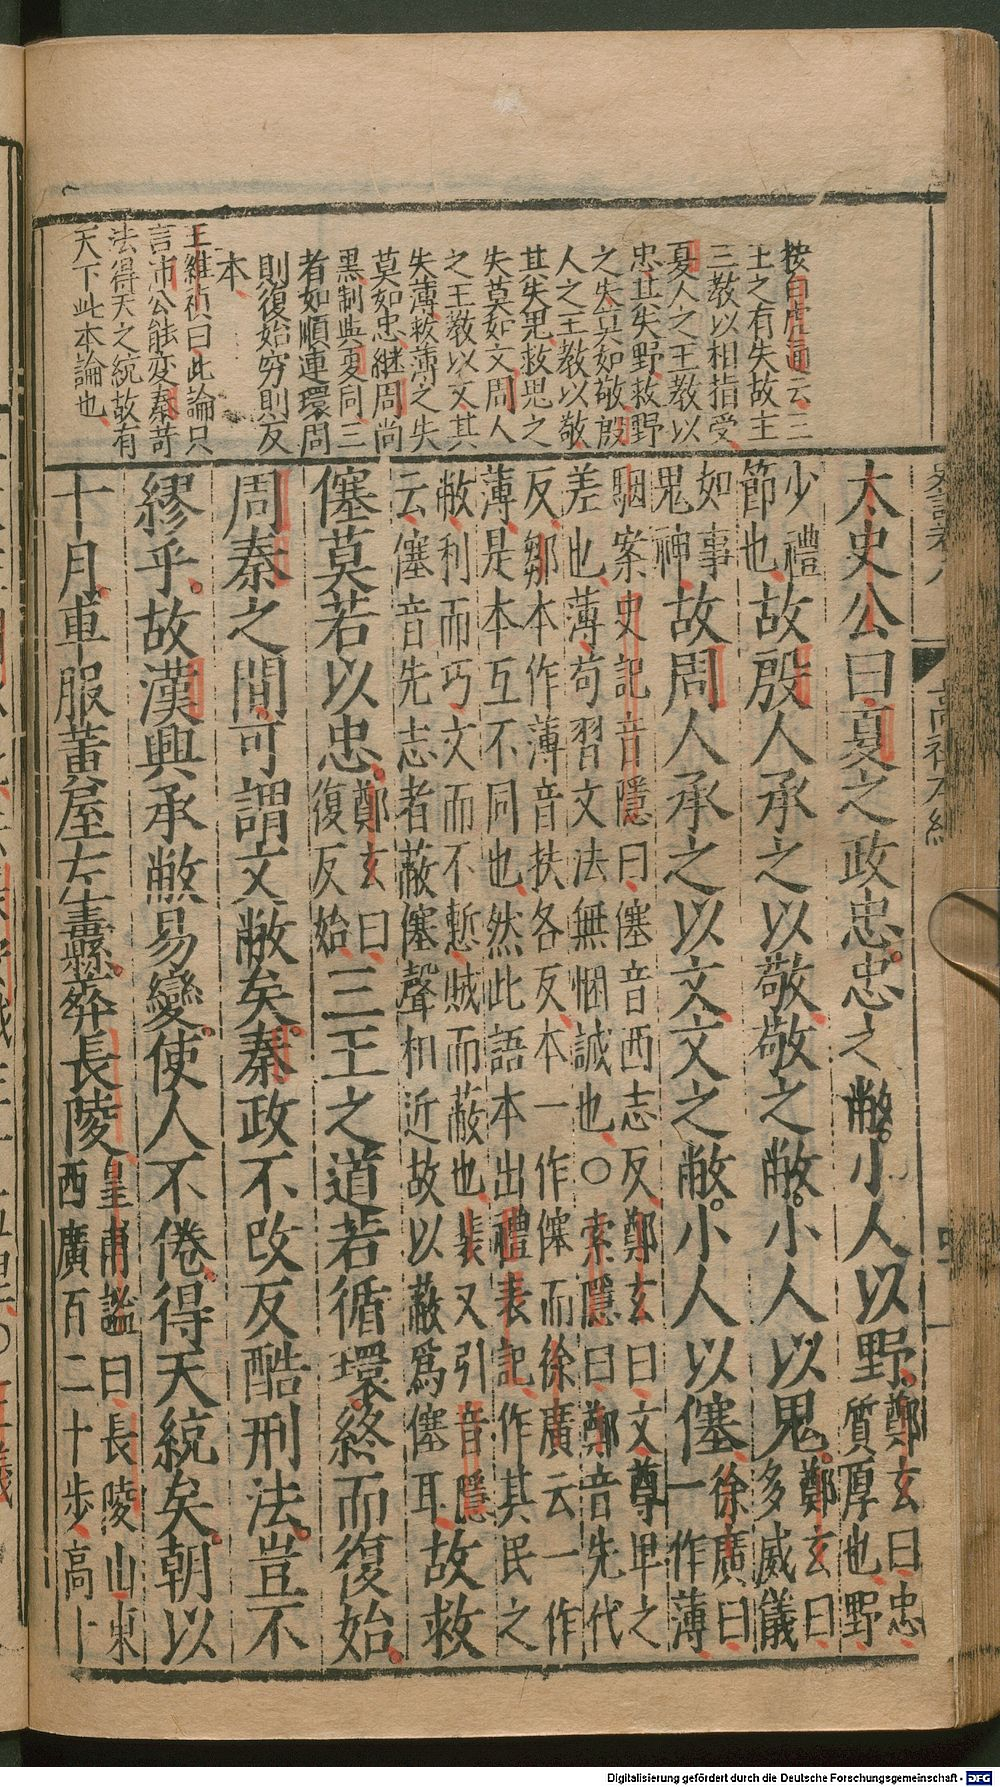 按白虎通云三
王之有失故主
三教以相指受
夏人之王教以
忠其失野救野
之失莫如敬殷
人之王教以敬
其失鬼救鬼之
失莫如文周人
之王教以文其
失薄救薄之失
莫如忠継周尚
黑制與夏同三
者如順連環周
則復始穷則反
本
王維禎曰此論只
言沛公能変秦苛
法得天之統故有
天下此本論也
太史公曰夏之政忠忠之敝小人以野鄭玄曰忠質厚也野
少禮節也故殷人承之以敬敬之敝小人以鬼鄭玄曰多威儀
如事鬼神故周人承之以文文之敝小人以僿徐廣曰一作薄
駰案史記音隱曰僿音西志反鄭玄曰文尊卑之
差也薄苟習文法無悃誠也〇索隱曰鄭音先代
反鄒本作薄音扶各反本一作僿而徐廣云一作
薄是本互不同也然此語本出禮表記作其民之
敝利而巧文而不慙賊而蔽也裴又引音隱
云僿音先志者蔽僿聲相近故以蔽爲僿耳故救
僿莫若以忠鄭玄曰復反始三王之道若循環終而復始
周秦之間可謂文敝矣秦政不改反酷刑法豈不
繆乎故漢興承敝易變使人不倦得天統矣朝以
十月車服黃屋左纛葬長陵皇甫謐曰長陵山東西廣百二十步高十
Digitalisierung gefördert durch die Deutsche Forschungsgemeinschaft - DFG